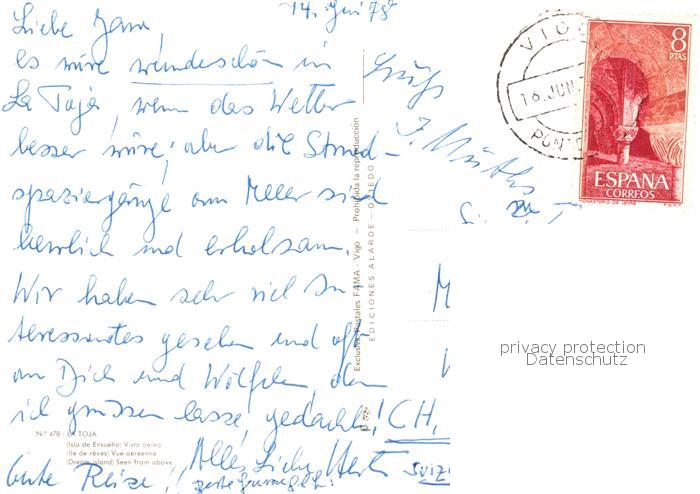 14. Juni 78
Liebe
es wäre wunderschön in
La Toja, wenn das Wetter
besser wäre; aber die Strand-
spaziergänge am Meer sind
herrlich und erholsam.
Wir haben sehr viel In
teressantes gesehen und oft
an Dich und Wölfchen, den
ich grüssen lasse, gedacht!
Alles Liebe
Gute Reise!
VIGO
16. JUN.
8
PTAS
ESPAÑA
CORREOS
MONASTERIO DE LEYRE
F.N.M.T.
CH,
N.º 478 - LA TOJA
(Isla de Ensueño) Vista aérea
(Ile de rêves) Vue aérienne
(Dream island) Seen from above
Exclusivas Postales FAMA - Vigo - Prohibida la reproducción
EDICIONES ALARDE - OVIEDO
privacy protection
Datenschutz